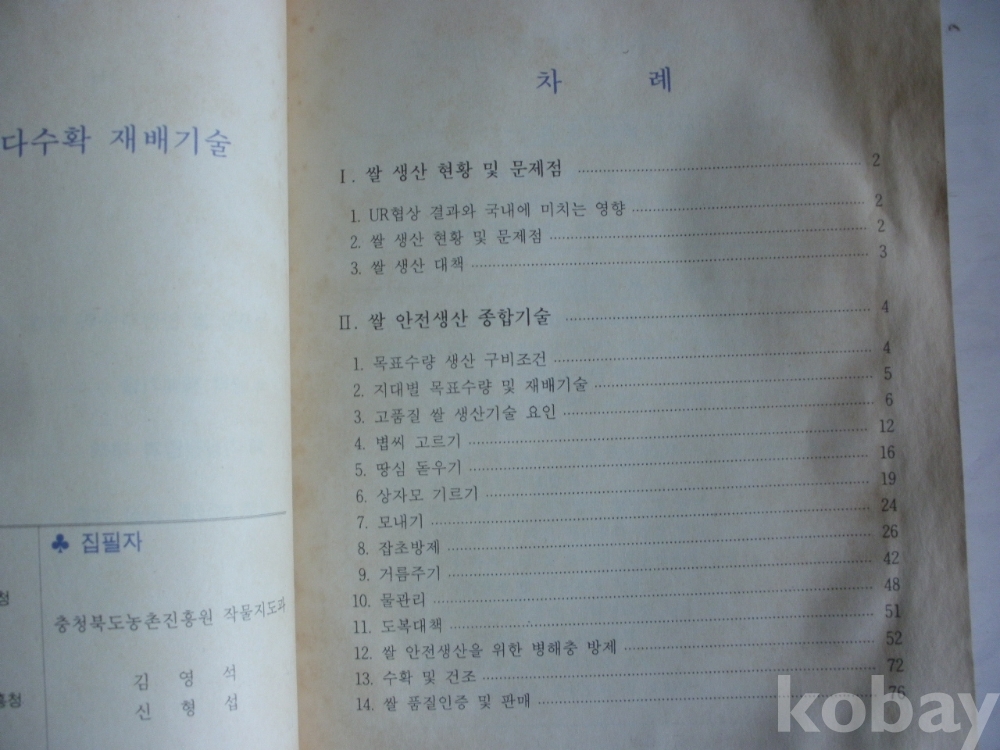 다수확 재배기술
♣ 집필자
충청북도농촌진흥원 작물지도과
김 영 석
신 형 섭
차 례
Ⅰ. 쌀 생산 현황 및 문제점 2
1. UR협상 결과와 국내에 미치는 영향 2
2. 쌀 생산 현황 및 문제점 2
3. 쌀 생산 대책 3
Ⅱ. 쌀 안전생산 종합기술 4
1. 목표수량 생산 구비조건 4
2. 지대별 목표수량 및 재배기술 5
3. 고품질 쌀 생산기술 요인 6
4. 볍씨 고르기 12
5. 땅심 돋우기 16
6. 상자모 기르기 19
7. 모내기 24
8. 잡초방제 26
9. 거름주기 42
10. 물관리 48
11. 도복대책 51
12. 쌀 안전생산을 위한 병해충 방제 52
13. 수확 및 건조 72
14. 쌀 품질인증 및 판매 76
kobay